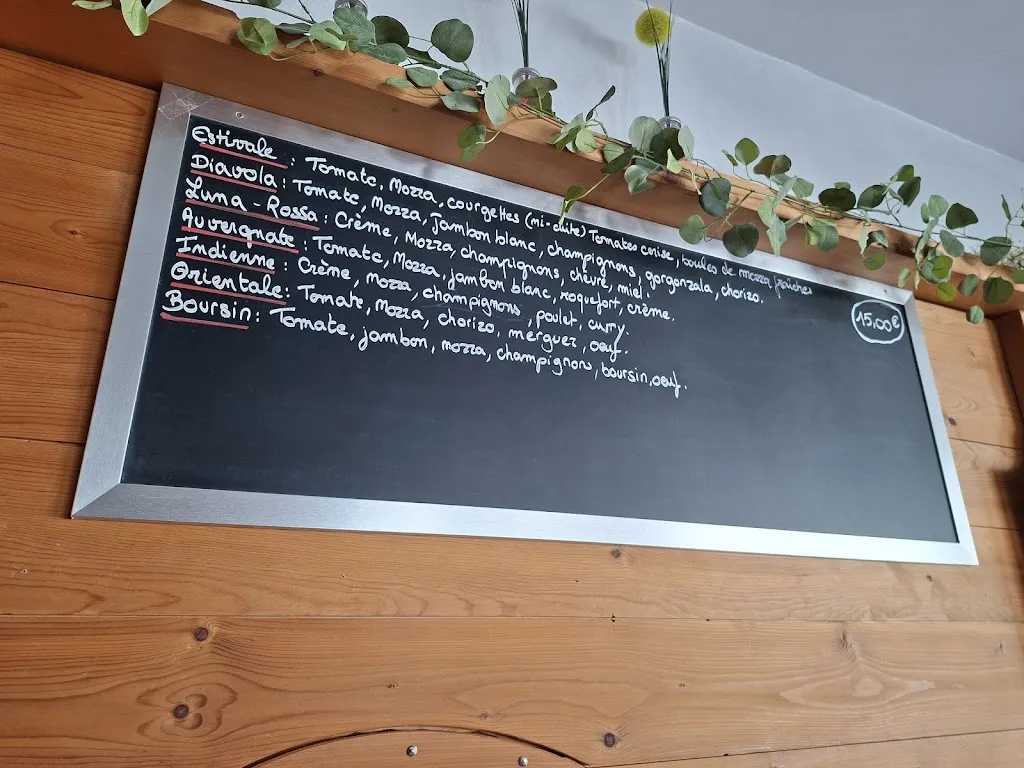 Estivale : Tomate, Mozza, courgettes (mi-cuite) Tomates cerise, boules de mozza fraiches
Diavola : Tomate, Mozza, Jambon blanc, champignons, gorgonzala, chorizo.
Luna-Rossa : Crème, Mozza, champignons, chèvre, miel.
Auvergnate : Tomate, Mozza, jambon blanc, roquefort, crème.
Indienne : Crème, mozza, champignons, poulet, curry.
Orientale : Tomate, Mozza, chorizo, merguez, oeuf.
Boursin : Tomate, jambon, mozza, champignons, boursin, oeuf.
15,00€